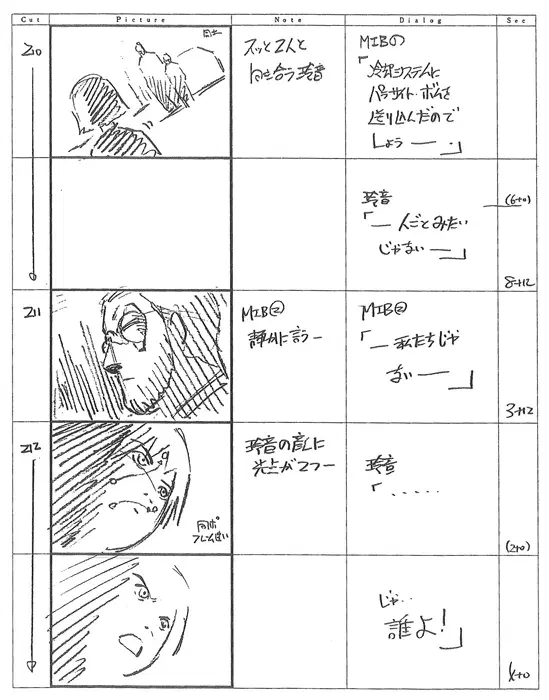 Cut Picture Note Dialog Sec
210
スッと2人と
向き合う玲音
MIB①
「冷却システムに
パラサイト・ボムを
送り込んだので
しょう ― 。」
玲音
「― 人ごとみたい
じゃない ―」
(6+0)
8+12
211
MIB②
静かに言う ―
MIB②
「― 私たちじゃ
ない ―」
3+12
212
玲音の瞳に
光点が2つ ―
玲音
「 ......
(2+0)
じゃ..
誰よ!」